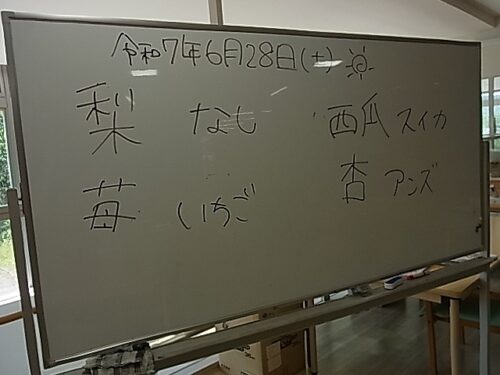 令和7年6月28日(土)
梨 なし 西瓜 スイカ
苺 いちご 杏 アンズ